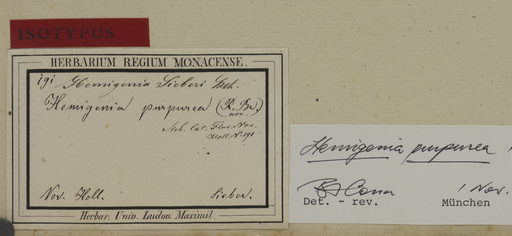 ISOTYPUS
HERBARIUM REGIUM MONACENSE.
Hemigenia Sieberi
Hemigenia purpurea (R. Br.)
non.
Sieb. Cat. Flor. Nov.
Holl. N. 191
Nov. Holl. Sieber.
Herbar. Univ. Ludov. Maximil.
Hemigenia purpurea
1 Nov.
Det. - rev. München